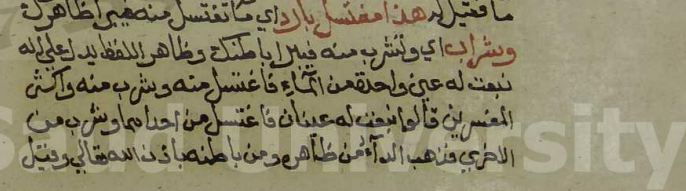 ما فقيل له هذا مغتسل بارد اي ما تغتسل منه فيبرا ظاهرك
وشراب اي وتشرب منه فيبرا باطنك وظاهر اللفظ يدل على انه
نبعت له عين واحدة من الماء فاغتسل منه وشرب منه واكثر
المفسرين قالوا نبعت له عينان فاغتسل من احداهما وشرب من
الاخري فذهب الدآء من ظاهره ومن باطنه باذن الله تعالي وقيل